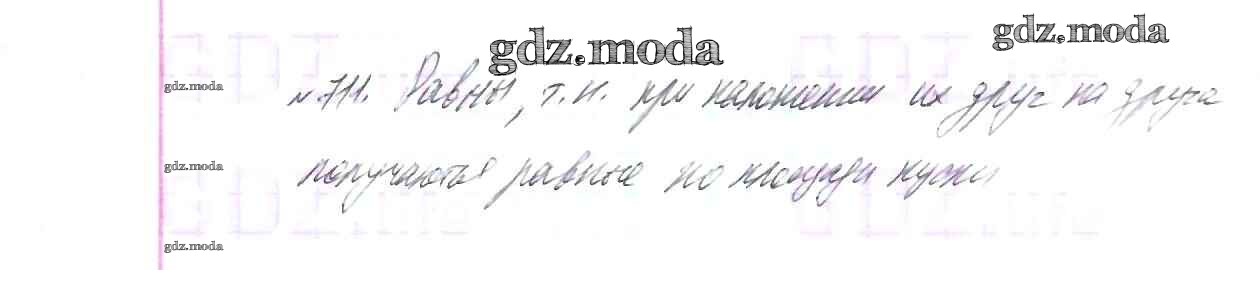 gdz.moda
gdz.moda
gdz.moda
№ 711. Равны, т.к. при наложении их друг на друга
gdz.moda
получаются равные по площади куски
gdz.moda